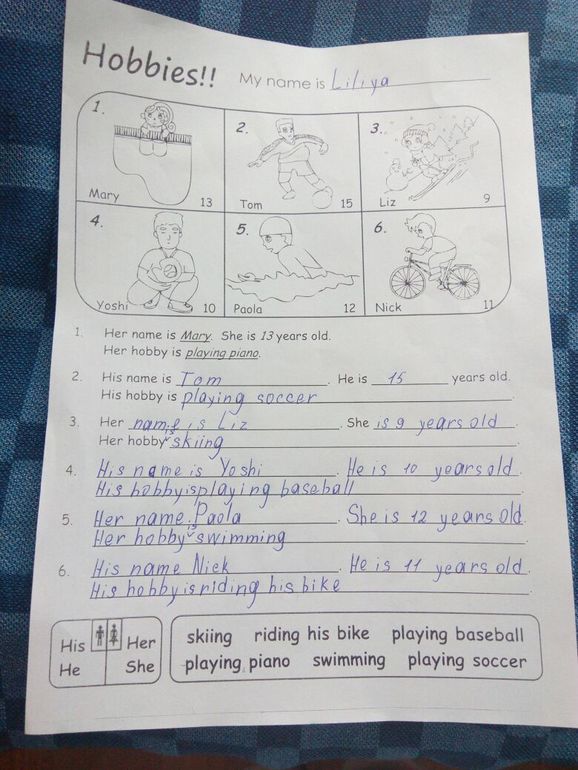 Hobbies!! My name is Liliya
1. 2. 3.
Mary 13 Tom 15 Liz 9
4. 5. 6.
Yoshi 10 Paola 12 Nick 11
1. Her name is Mary. She is 13 years old.
Her hobby is playing piano.
2. His name is Tom. He is 15 years old.
His hobby is playing soccer.
3. Her name is Liz. She is 9 years old.
Her hobby is skiing.
4. His name is Yoshi. He is 10 years old.
His hobby is playing baseball.
5. Her name is Paola. She is 12 years old.
Her hobby is swimming.
6. His name Nick. He is 11 years old.
His hobby is riding his bike.
His Her
He She
skiing riding his bike playing baseball
playing piano swimming playing soccer